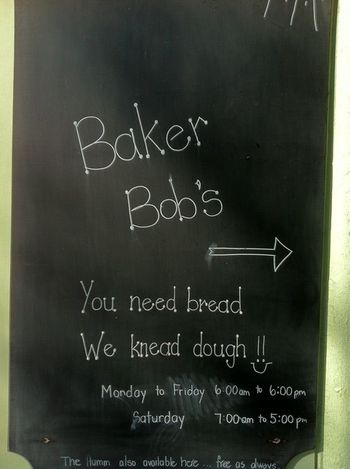 Baker
Bob's
You need bread
We knead dough !!
Monday to Friday 6:00am to 6:00pm
Saturday 7:00am to 5:00pm
The Humm also available here ... free as always